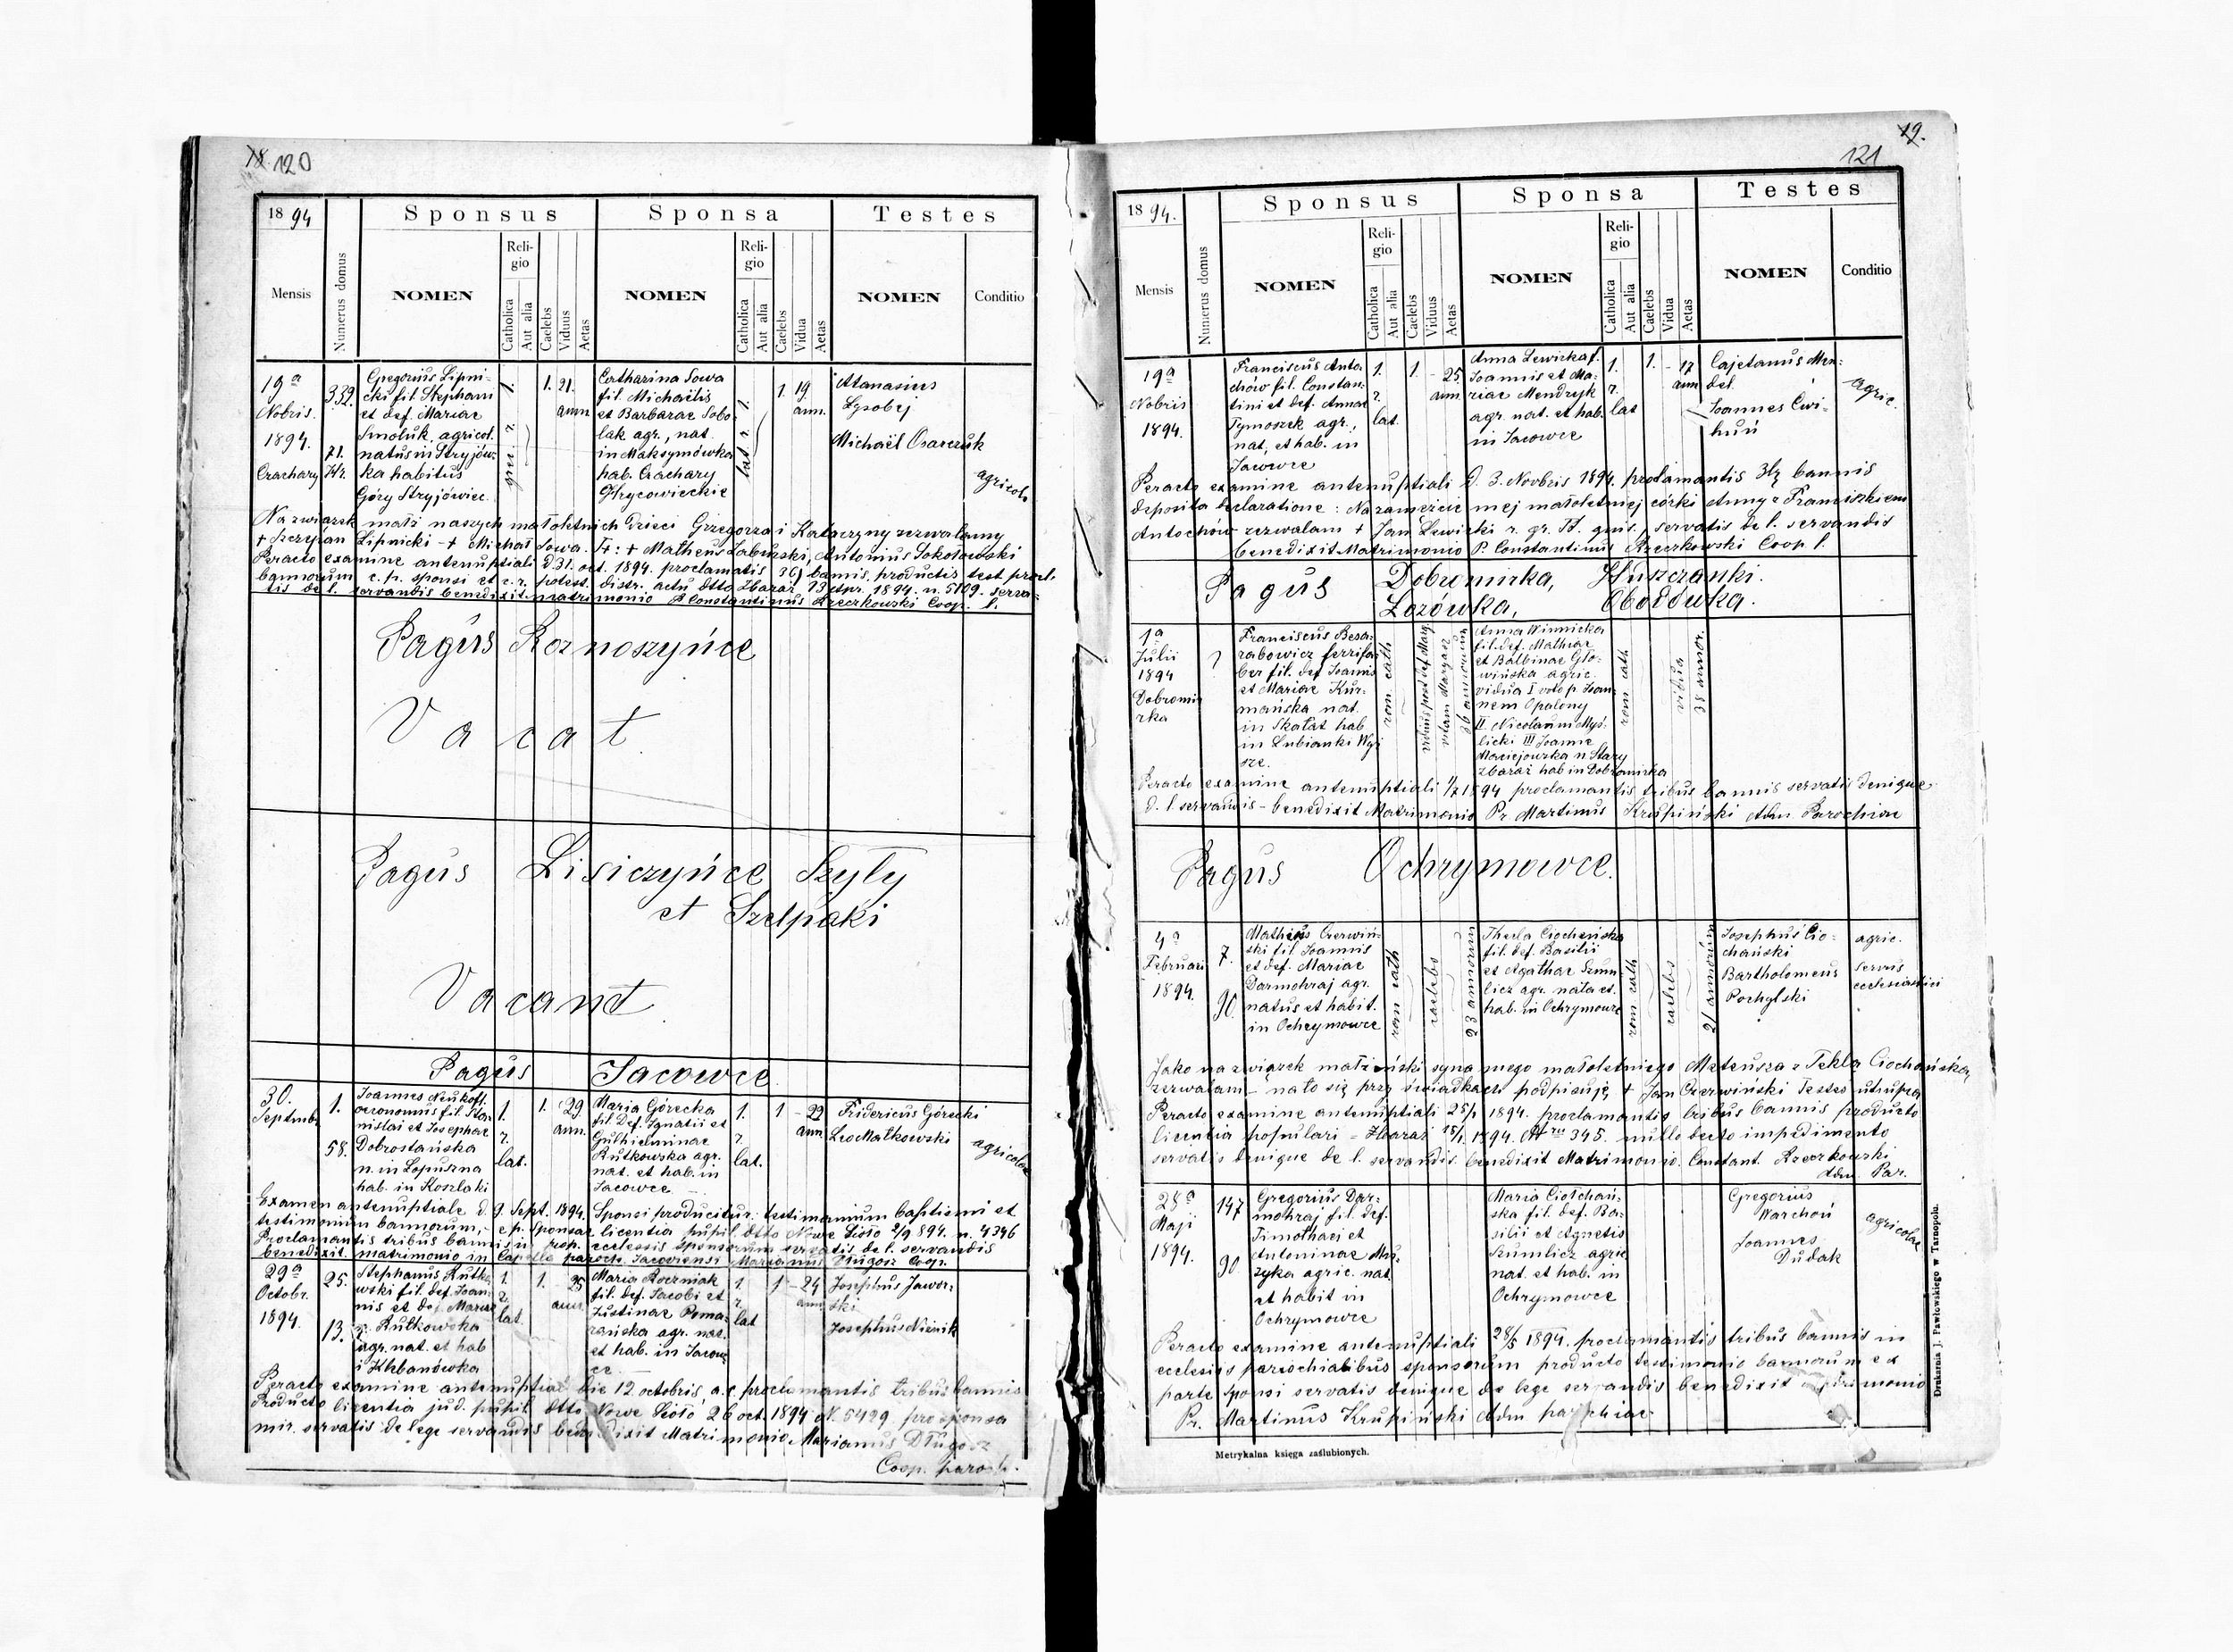 18 120
1894
Sponsus Sponsa Testes
Mensis
Numerus domus
NOMEN
Religio
Catholica
Aut alia
Caelebs
Viduus
Aetas
NOMEN
Religio
Catholica
Aut alia
Caelebs
Vidua
Aetas
NOMEN
Conditio
19a
Nobris.
1894.
Czachary
339.
71.
Hr.
Gregorius Lipni-
cki fil. Stephani
et def. Mariae
Smoluk, agricol.
natus in Stryjów-
ka habitus
Góry Stryjówiec.
1. 21.
ann
Catharina Sowa
fil. Michaëlis
et Barbarae Sobo-
lak agr., nat.
in Maksymówka
hab. Czachary
lat. r. 1.
1. 19.
ann.
Atanasius
Michaël
agricol
Na związek małż naszych małoletnich dzieci Grzegorza i Katarzyny zezwalamy
+ Szczepan Lipnicki - + Michał Sowa. T: + Matheus Antonius Sokołowski
Peracto examine antenuptiali d. 31. oct. 1894. proclamatis 3(?) bannis, productis test procl.
bannorum e. p. sponsi et c. r. potest. distr. actu dtto Zbaraż 1894. n. 5109. serva-
tis de l. servandis benedixit matrimonio P. Constantinus Rzeczkowski Coop. l.
Pagus Roznoszyńce
Vacat
Pagus Lisiczyńce Szyły
et Szelpaki
Vacant
Pagus Jacowce
30.
Septembr
1.
58.
Joannes Neukoft.
oeconomus fil. Sta-
nislai et Josephae
Dobrostańska
n. in Łopuszna
hab. in Koszlaki
1.
r.
lat.
1. 29
ann.
Maria Górecka
fil. Def. Ignatii et
Gulhielminae
Rutkowska agr.
nat. et hab. in
Jacowce
1.
r.
lat.
1 - 22
ann
Fridericus Górecki
Leo Małkowski
agricolae
Examen antenuptiale d. 9. Sept. 1894. Sponsi producitur: testimonium baptismi et
testimonium bannorum, - e p. sponsae licentia pupil. dtto Nowe Sioło 2/9 894. n. 4346
Proclamantis tribus bannis in prop. ecclessis sponsorum servatis de l. servandis
benedixit matrimonio in Capella paroch. Jacoviensi Marianus Długosz Coop.
29a
Octobr.
1894.
25.
13.
Stephanus Rutko-
wski fil. def. Joan-
nis et def. Mariae
Rutkowska
agr. nat. et hab
i Klebanówka
1.
r.
lat
1. 25
ann.
Maria Roczniak
fil. def. Jacobi et
Justinae Poma-
rańska agr. nat.
et hab. in Jacow-
ce
1.
r.
lat
1 - 24
ann
Josephus Jawor-
ski
Josephus
Peracto examine antenuptial die 12. octobris a. c. proclamantis tribus bannis
Producto licentia jud. pupil. dtto Nowe Sioło 26 oct. 1894 N. 5429 pro sponsa
min. servatis de lege servandis benedixit Matrimonio Marianus Długosz
Coop. paroch.
19.
121
1894.
Sponsus Sponsa Testes
Mensis
Numerus domus
NOMEN
Religio
Catholica
Aut alia
Caelebs
Viduus
Aetas
NOMEN
Religio
Catholica
Aut alia
Caelebs
Vidua
Aetas
NOMEN
Conditio
19a
Nobris
1894.
Franciscus Anto
chów fil. Constan-
tini et def. Annae
Tymoszek agr.,
nat. et hab. in
Jacowce
1.
r.
lat.
1. - 25
ann
Anna Lewicka f.
Joannis et Ma-
riae Mendryk
agr. nat. et hab.
in Jacowce
1.
r.
lat
1. - 17
ann
Cajetanus Men-
del.
Joannes Ćwi-
huń
agric.
Peracto examine antenuptiali d. 3. Novbris 1894. proclamantis 3bz bannis
deposita declaratione: Na zamężcie mej małoletniej córki Anny z Franciszkiem
Antochów zezwalam + Jan Lewicki servatis de l. servandis
benedixit Matrimonio P. Constantinus Rzeczkowski Coop l.
Pagus Dobromirka, Huszczanki.
Lozówka, Obodówka.
1a
Julii
1894
Dobromi-
rka
?
Franciscus Besa-
rabowicz ferrifa-
ber fil. def Joannis
et Mariae Kur-
mańska nat.
in Skałat hab
in Łubianki Wyż-
sze.
rom cath
36 annorum
Anna Winnicka
fil. def. Mathiae
et Balbinae Gło-
wińska agric.
vidua I voto p. Joan-
nem Opalony
II Nicolaum Myś-
licki III Joanne
Maciejowska n Stary
Zbaraż hab in Dobromirka
rom cath
vidua
38 annor.
Peracto examine antenuptiali 1/7 1894 proclamantis tribus bannis servatis denique
d. l. servandis - benedixit Matrimonio Pr. Martinus Krupiński Adm. Parochiae
Pagus Ochrymowce.
4a
Februarii
1894.
7.
90.
Matheus Czerwiń-
ski fil. Joannis
et def. Mariae
Darmohraj agr.
natus et habit.
in Ochrymowce
rom cath
caelebs
23 annorum
Thecla Ciochańska
fil. def. Basilii
et Agathae Szum-
licz agr. nata et
hab. in Ochrymowce
rom cath
caelebs
21 annorum
Josephus Cio-
chański
Bartholomeus
Pochylski
agric.
servus
ecclesiastici
Jako na związek małżeński syna mego małoletniego Mateusza z Teklą Ciochańską,
zezwalam - na to się przy świadkach podpisuję + Jan Czerwiński Testes ut supra
Peracto examine antenuptiali 25/1 1894. proclamantis tribus bannis producto
licentia popularis - Zbaraż 25/1 1894. 345. nullo detecto impedimento
servatis denique de l. servandis benedixit Matrimonio. Constant. Rzeczkowski
Adm. Par.
28a
Maji
1894.
147
90
Gregorius Dar-
mohraj fil. def.
Timothaei et
Antoninae Mu-
zyka agric. nat.
et habit in
Ochrymowce
Maria Ciołchań-
ska fil. def. Ba-
silii et Agnetis
Szumlicz agric
nat. et hab. in
Ochrymowce
Gregorius
Warchoń
Joannes
Dudak
agricolae
Peracto examine antenuptiali 28/5 1894. proclamantis tribus bannis in
ecclesiis parochialibus sponsorum producto testimonio bannorum ex
parte sponsi servatis denique de lege servandis benedixit matrimonio
Pr. Martinus Krupiński Adm parochiae
Metrykalna księga zaślubionych.
Drukarnia J. Pawłowskiego w Tarnopolu.